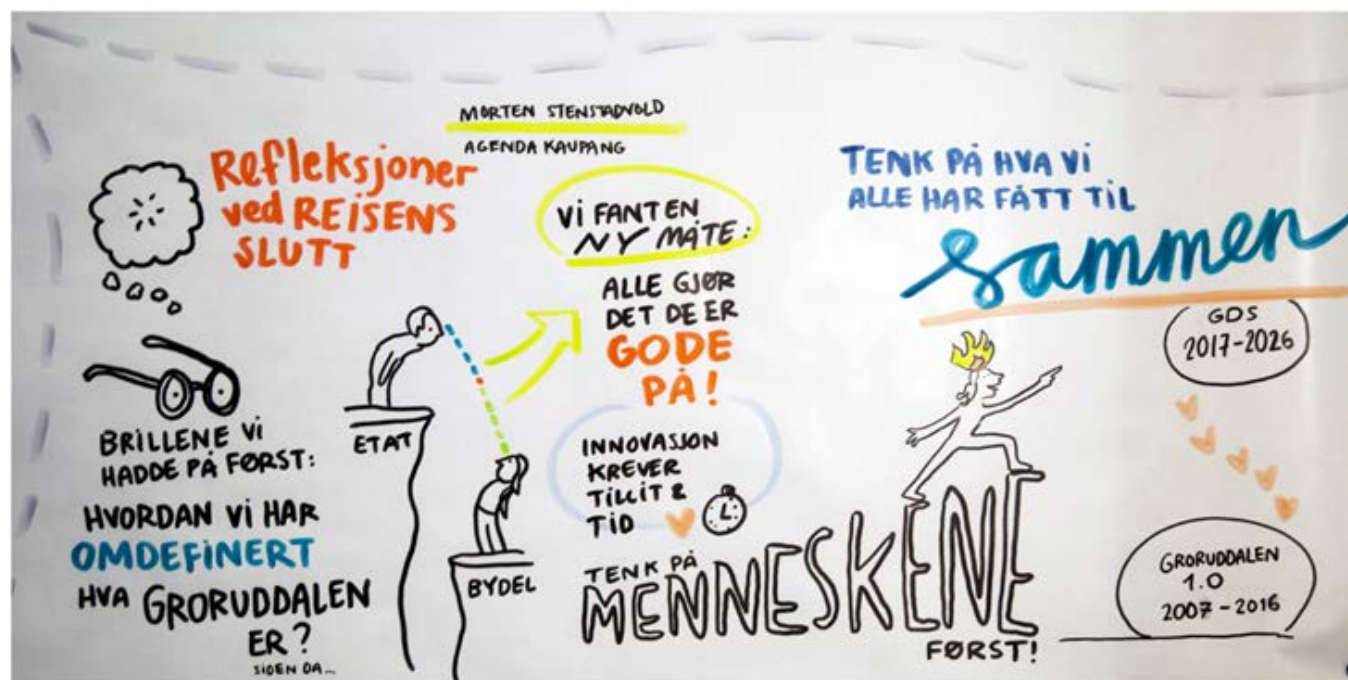 MORTEN STENSTADVOLD
AGENDA KAUPANG
Refleksjoner
ved REISENS
SLUTT
BRILLENE VI
HADDE PÅ FØRST:
HVORDAN VI HAR
OMDEFINERT
HVA GRORUDDALEN
ER?
SIDEN DA...
ETAT
BYDEL
VI FANT EN
NY MÅTE:
ALLE GJØR
DET DE ER
GODE
PÅ!
INNOVASJON
KREVER
TILLIT &
TID
TENK PÅ
MENNESKENE
FØRST!
TENK PÅ HVA VI
ALLE HAR FÅTT TIL
sammen
GDS
2017-2026
GRORUDDALEN
1.0
2007-2016